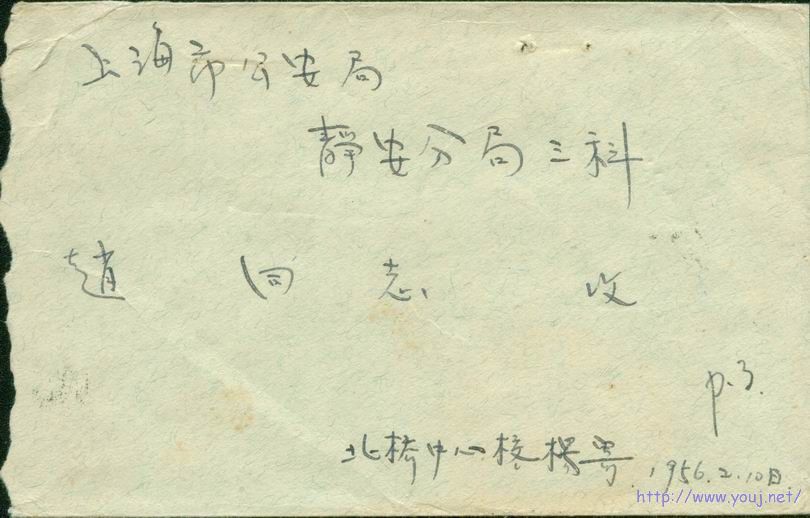 上海市公安局
靜安分局三科
趙 同志 收
p.3.
北橋中心校楊寄 1956.2.10日.
http://www.youj.net/